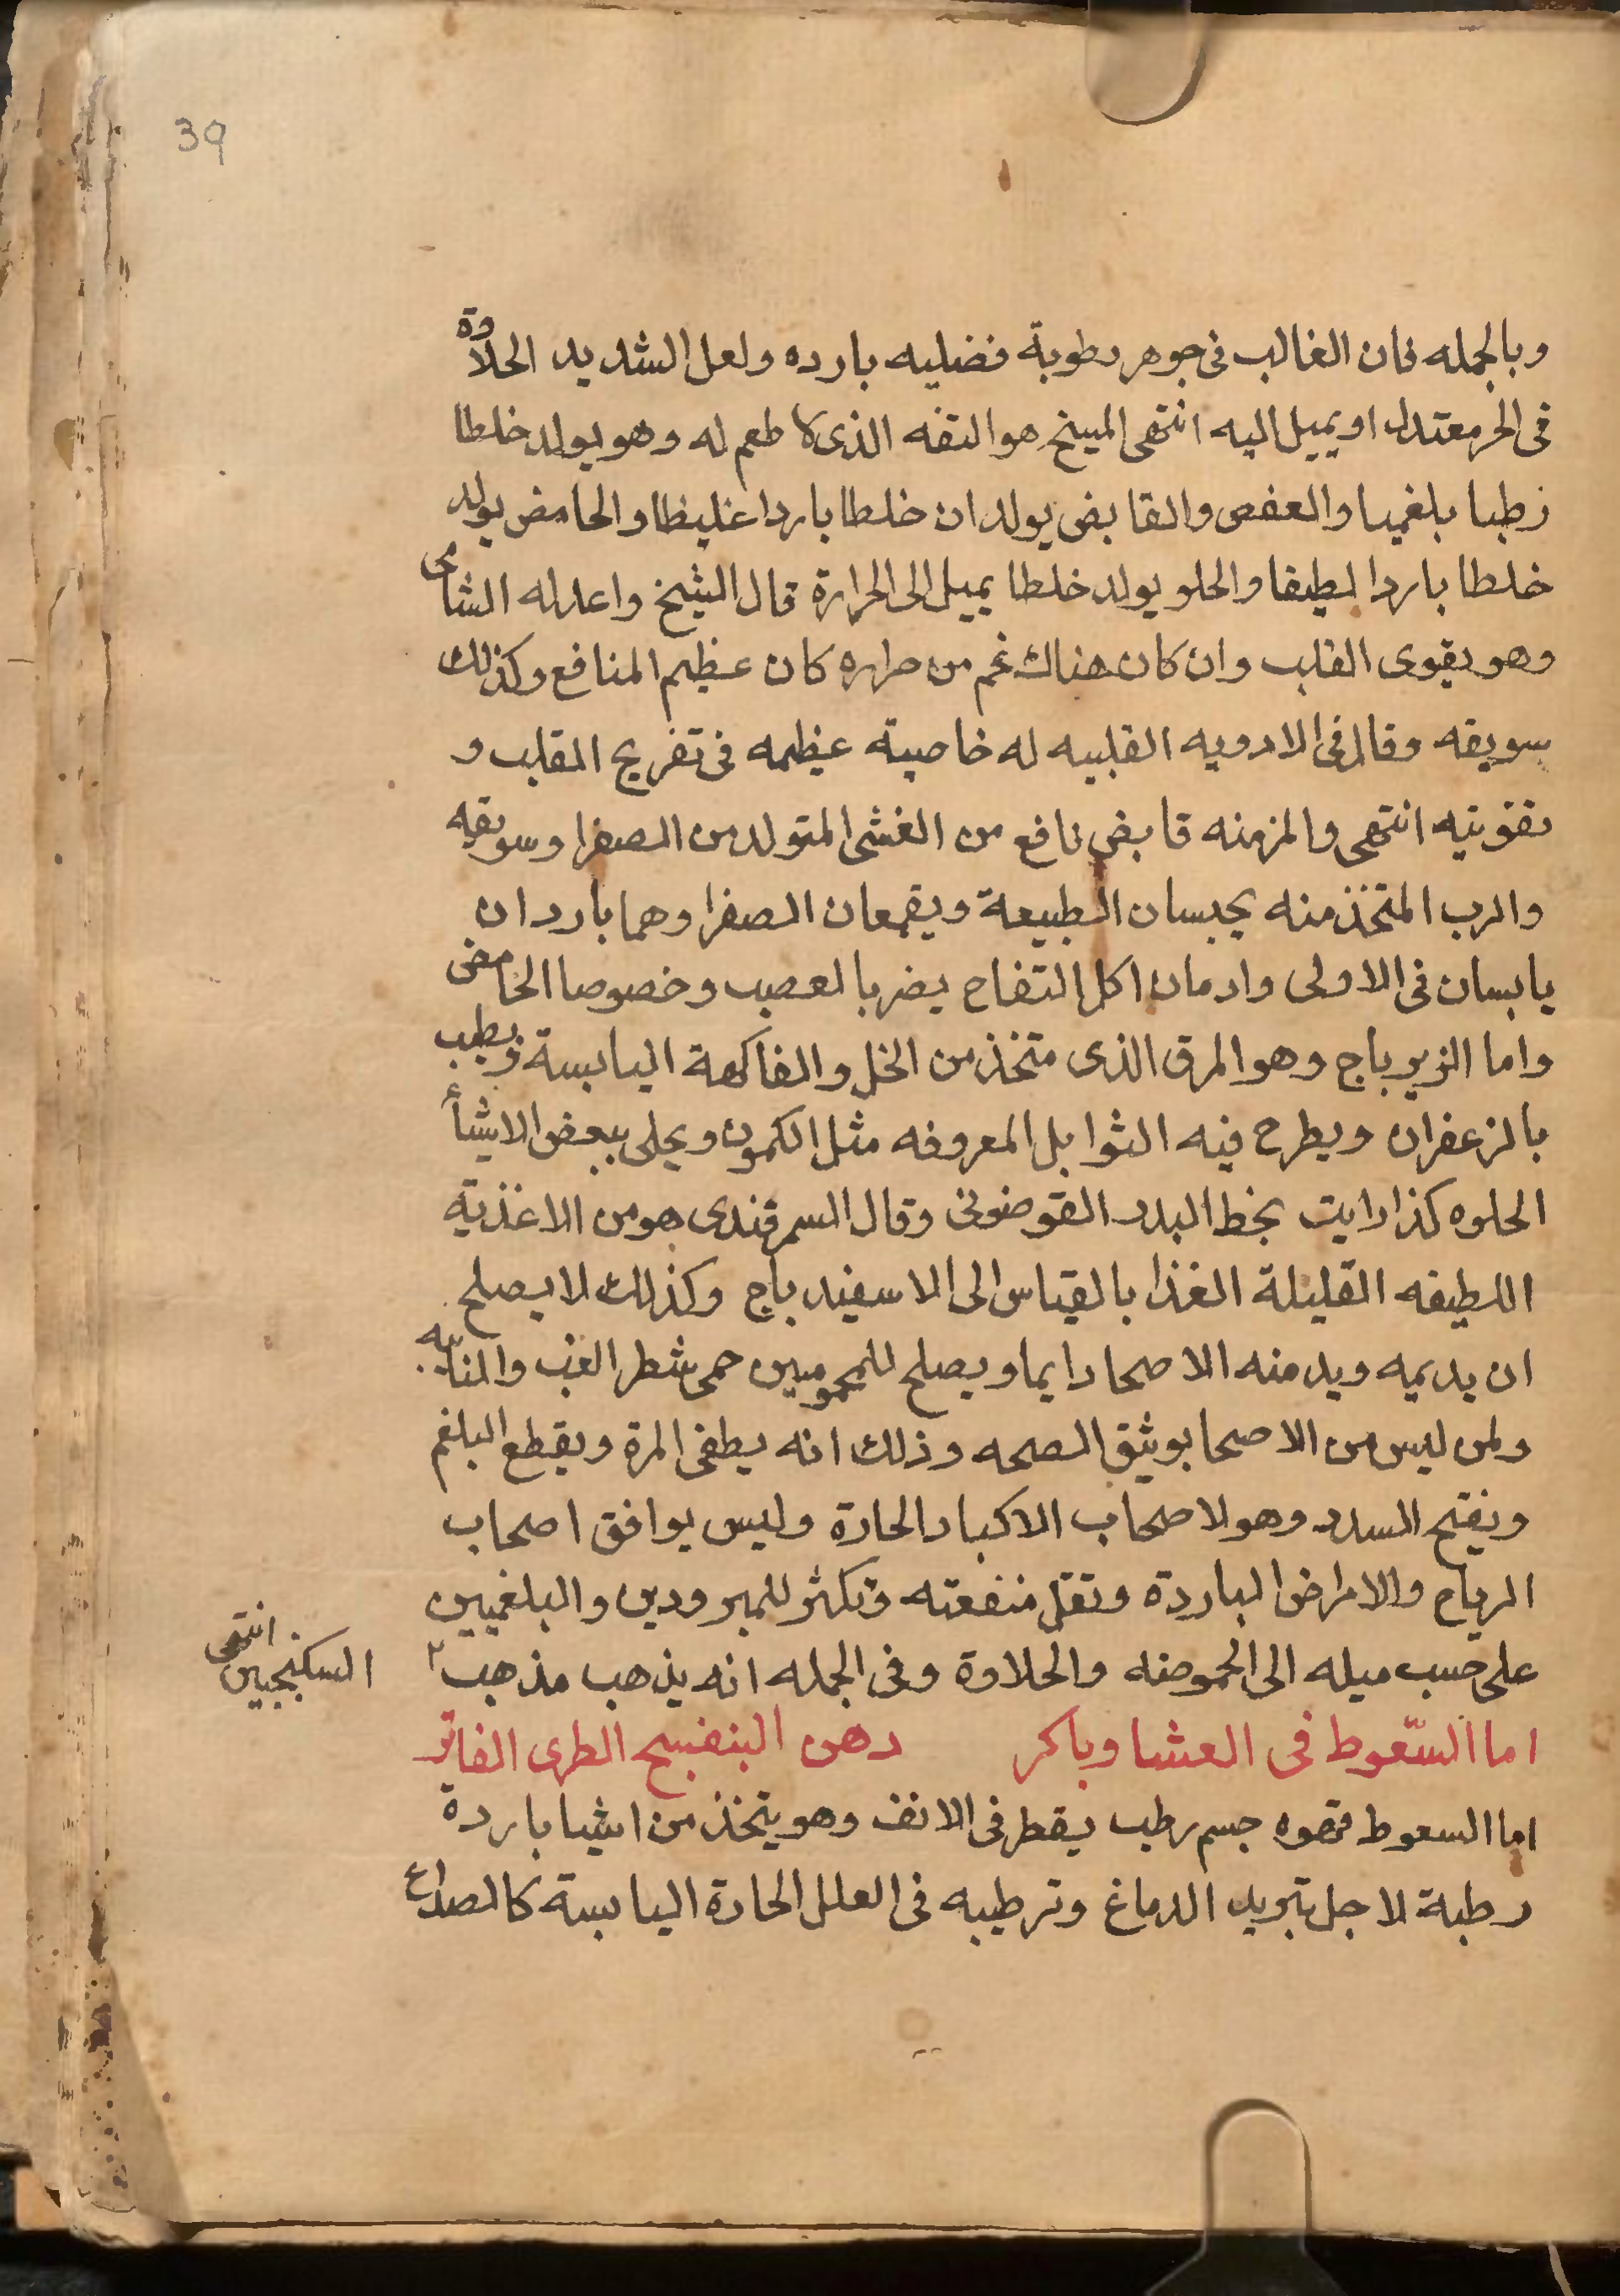 39
وبالجمله فان الغالب فى جوهر رطوبة فضليه بارده ولعل الشديد الحلاوة
فى الحر معتدل او يميل اليه انتهى المسيخ هو التفه الذى لا طعم له وهو يولد خلطا
رطبا بلغميا والعفص والقابض يولدان خلطا باردا غليظا والحامض يولد
خلطا باردا لطيفا والحلو يولد خلطا يميل الى الحرارة قال الشيخ واعدله الشامى
وهو يقوى القلب وان كان هناك غم من حراره كان عظيم المنافع وكذلك
سويقه وقال فى الادويه القلبيه له خاصية عظيمه فى تفريح القلب و
تقويته انتهى والمزمنه قابض نافع من الغشى المتولد من الصفرا وسويقه
والرب المتخذ منه يحبسان الطبيعة ويقمعان الصفرا وهما باردان
يابسان فى الاولى وادمان اكل التفاح يضر بالعصب وخصوصا الحامض
واما الزيرباج وهو المرق الذى متخذ من الخل والفاكهة اليابسة ويطيب
بالزعفران ويطرح فيه الثوابل المعروفه مثل الكمون ويحلى ببعض الاشيأ
الحلوه كذا رايت بخط البدر القوصونى وقال السمرقندى هو من الاغذية
اللطيفه القليلة الغذا بالقياس الى الاسفيدباج وكذلك لا يصلح
ان يديمه ويدمنه الاصحا دايما ويصلح للمحمومين حمى شطر الغب
ولمن ليس من الاصحا بوثيق الصحه وذلك انه يطفى المرة ويقطع البلغم
ويفتح السدد وهو لاصحاب الاكباد الحارة وليس يوافق اصحاب
الرياح والامراض الباردة وتقل منفعته وتكثر للمبرودين والبلغميين
على حسب ميله الى الحموضه والحلاوة وفى الجمله انه يذهب مذهب
السكنجبين انتهى
اما السّعوط فى العشا وباكر دهن البنفسج الطرى الفاتر
اما السعوط فهو جسم رطب يقطر فى الانف وهو يتخذ من اشيا باردة
رطبة لاجل تبريد الدماغ وترطيبه فى العلل الحارة اليابسة كالصداع